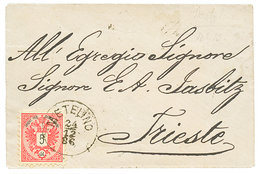 All' Egregio Signore
Signor E. A. Jasbitz
Trieste
METELINO
24
12
86
5